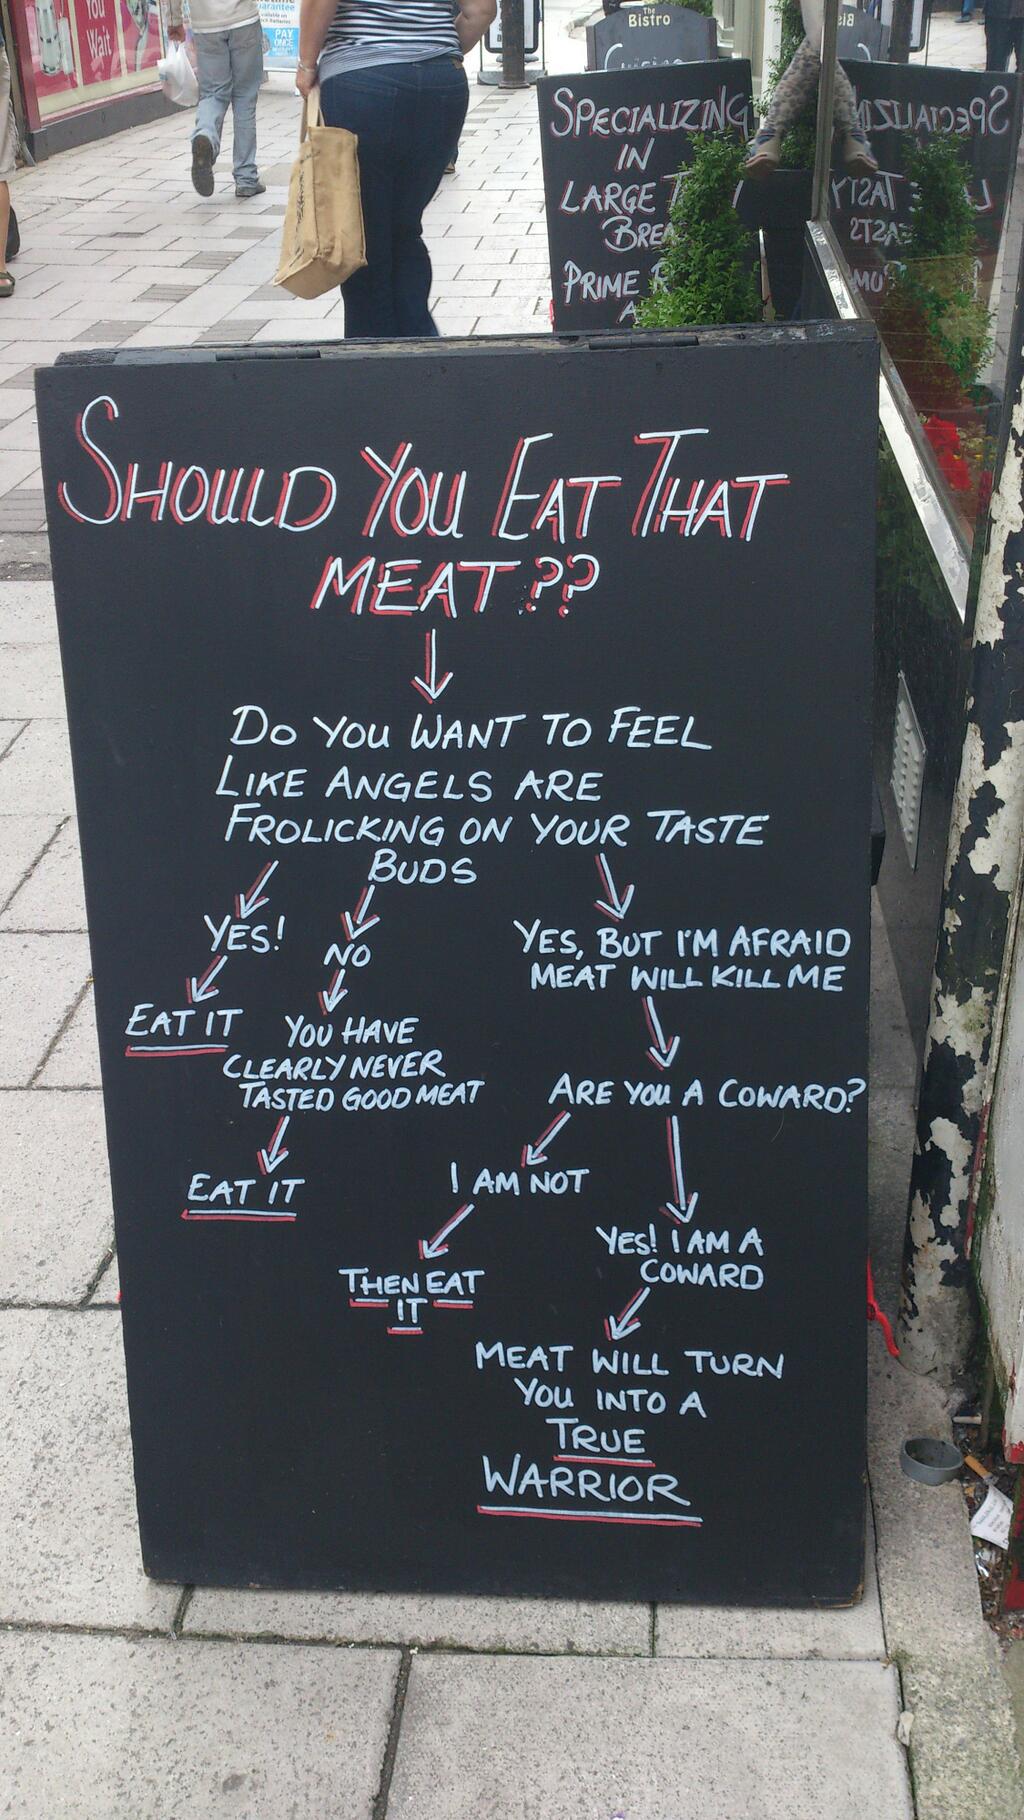 You
Wait
PAY
ONCE
The
Bistro
SPECIALIZING
IN
LARGE
PRIME
SHOULD YOU EAT THAT
MEAT??
DO YOU WANT TO FEEL
LIKE ANGELS ARE
FROLICKING ON YOUR TASTE
BUDS
YES!
NO
YES, BUT I'M AFRAID
MEAT WILL KILL ME
EAT IT
YOU HAVE
CLEARLY NEVER
TASTED GOOD MEAT
EAT IT
ARE YOU A COWARD?
I AM NOT
THEN EAT
IT
YES! I AM A
COWARD
MEAT WILL TURN
YOU INTO A
TRUE
WARRIOR